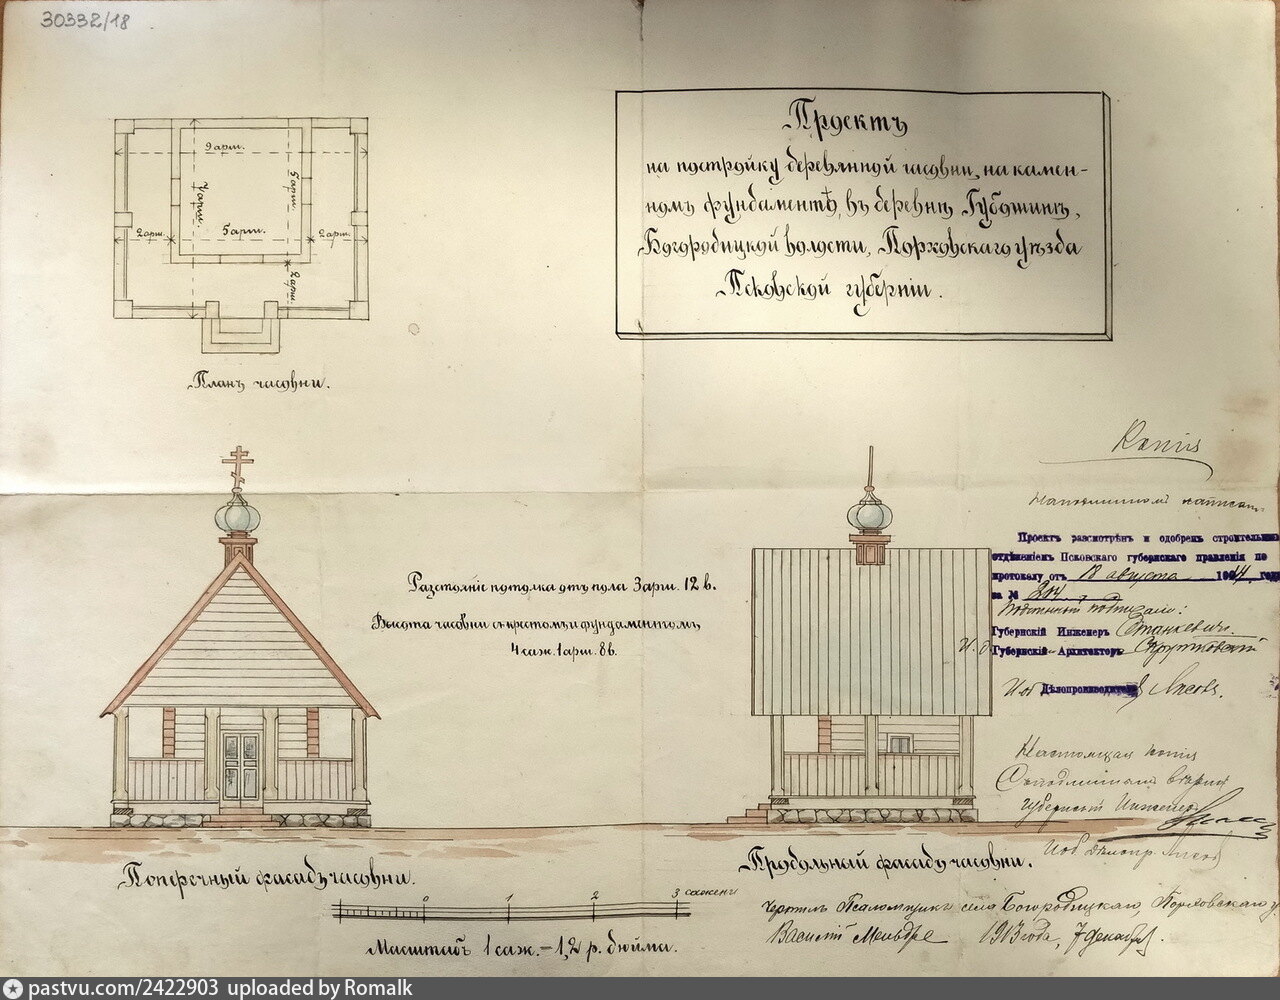 30332/18
Проектъ
на постройку деревянной часовни, на камен-
номъ фундаментѣ, въ деревнѣ Губошинѣ,
Богородицкой волости, Порховскаго уѣзда
Псковской губернiи.
9 арш.
5 арш.
7 арш.
5 арш.
2 арш.
2 арш.
2 арш.
Планъ часовни.
Копiя
На подлинномъ написано
Проектъ разсмотрѣнъ и одобренъ строительнымъ
отдѣленiемъ Псковскаго губернскаго правленiя по
протоколу отъ 18 августа 1914 года
за № 204.
Подлинный подписали:
Губернскiй Инженеръ Станкевичъ
И. д. Губернскiй Архитекторъ
И об Дѣлопроизводителя Лисовъ.
Разстоянiе потолка отъ пола 3 арш. 12 в.
Высота часовни съ крестомъ и фундаментомъ
4 саж. 1 арш. 8 в.
Настоящая копiя
Съ подлиннымъ вѣрна
Губернскiй Инженеръ
И об. дѣлопр. Лисовъ
Поперечный фасадъ часовни.
Продольный фасадъ часовни.
0 1 2 3 сажени
Масштабъ 1 саж. = 1,2 р. дюйма.
Чертилъ Псаломщикъ села Богородицкаго, Порховскаго у
Василiй 1913 года, 7 декабря.
pastvu.com/2422903 uploaded by Romalk